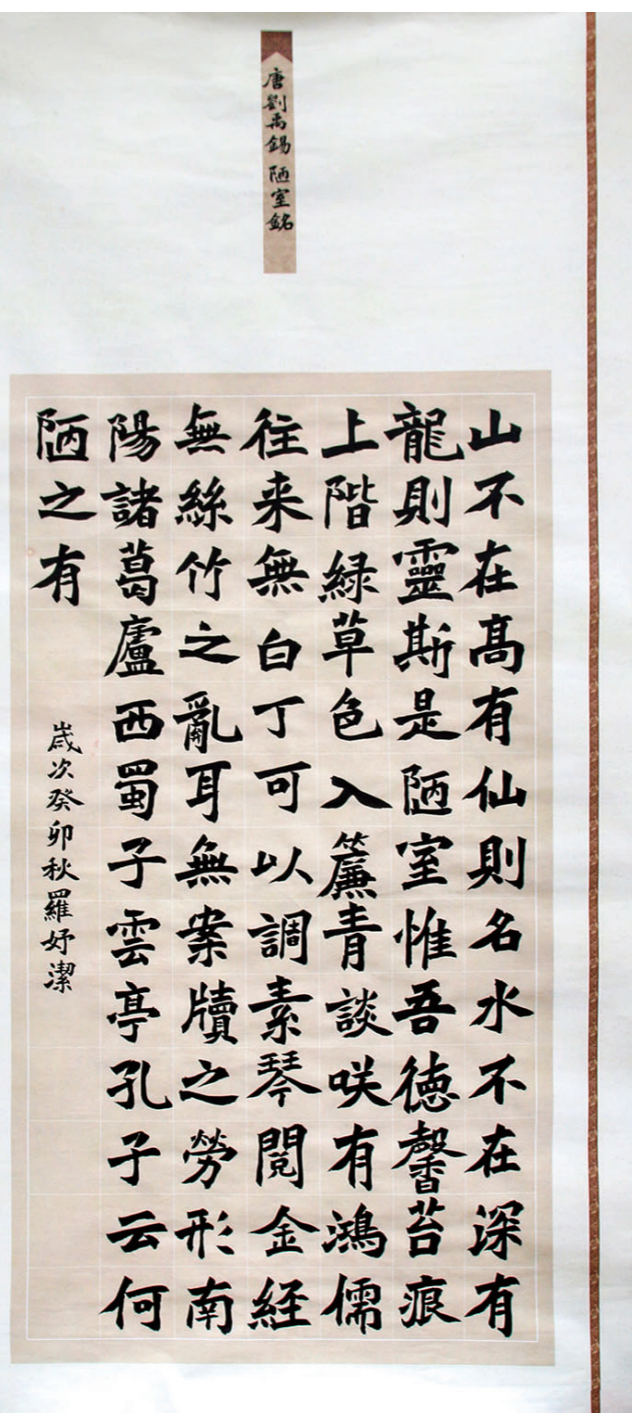 唐劉禹錫 陋室銘
山不在高有仙則名水不在深有
龍則靈斯是陋室惟吾德馨苔痕
上階緑草色入簾青談咲有鴻儒
往来無白丁可以調素琴閲金経
無絲竹之亂耳無案牘之勞形南
陽諸葛廬西蜀子雲亭孔子云何
陋之有
歲次癸卯秋羅妤潔